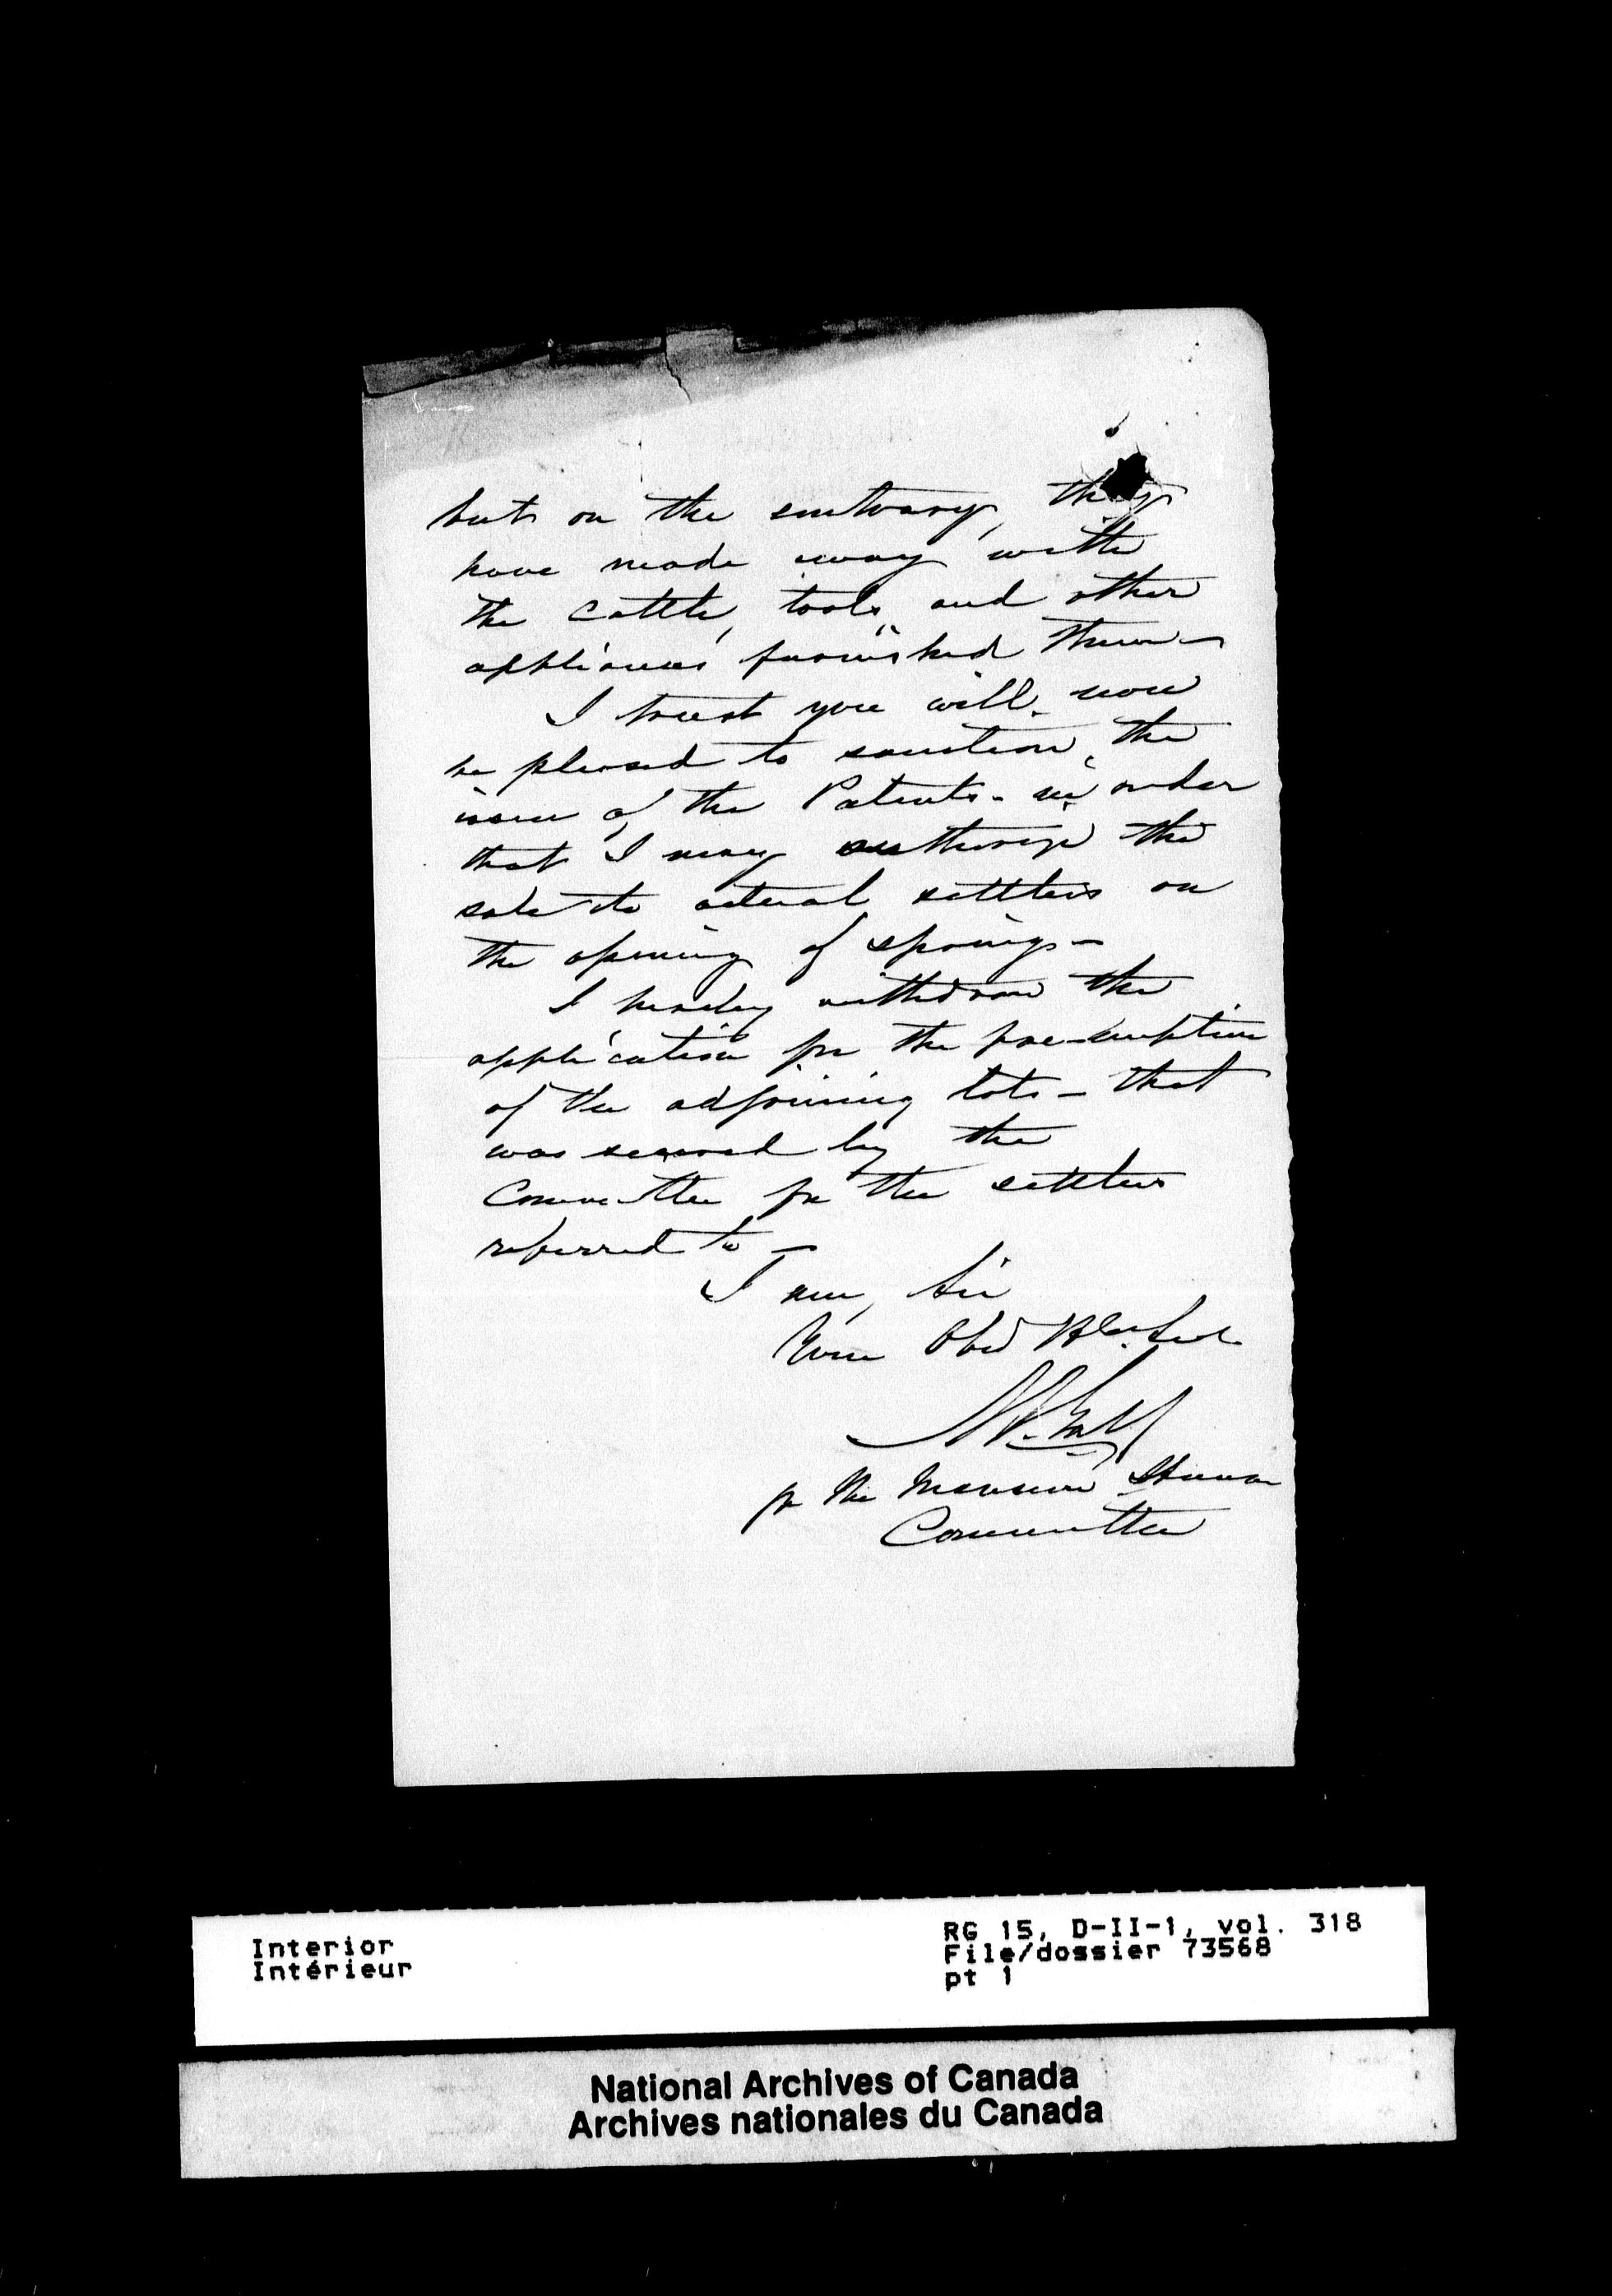 but on the contrary, they
have made away with
the cattle, tools, and other
appliances furnished them—
I trust you will now
be pleased to sanction the
issue of the Patents - in order
that I may authorize the
sale to actual settlers on
the opening of spring—
I hereby withdraw the
application for the pre-emption
of the adjoining lots — that
was secured by the
Committee for the settlers
referred to —
I am, Sir
Your Obed
for the Mansion House
Committee
Interior
Intérieur
RG 15, D-II-1, vol. 318
File/dossier 73568
pt 1
National Archives of Canada
Archives nationales du Canada